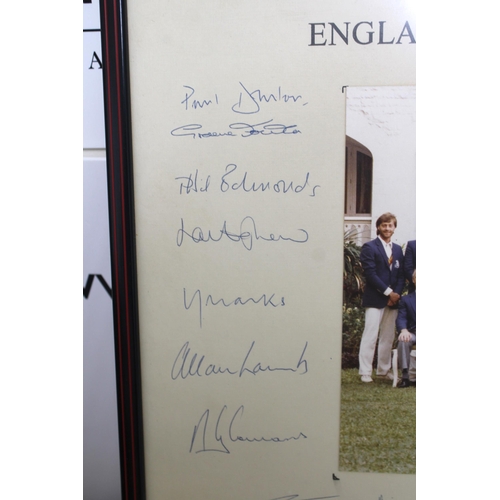 ENGLA
A
Paul Downton.
Graeme Fowler
Phil Edmonds
V Marks
Allan Lamb
N G Cowans